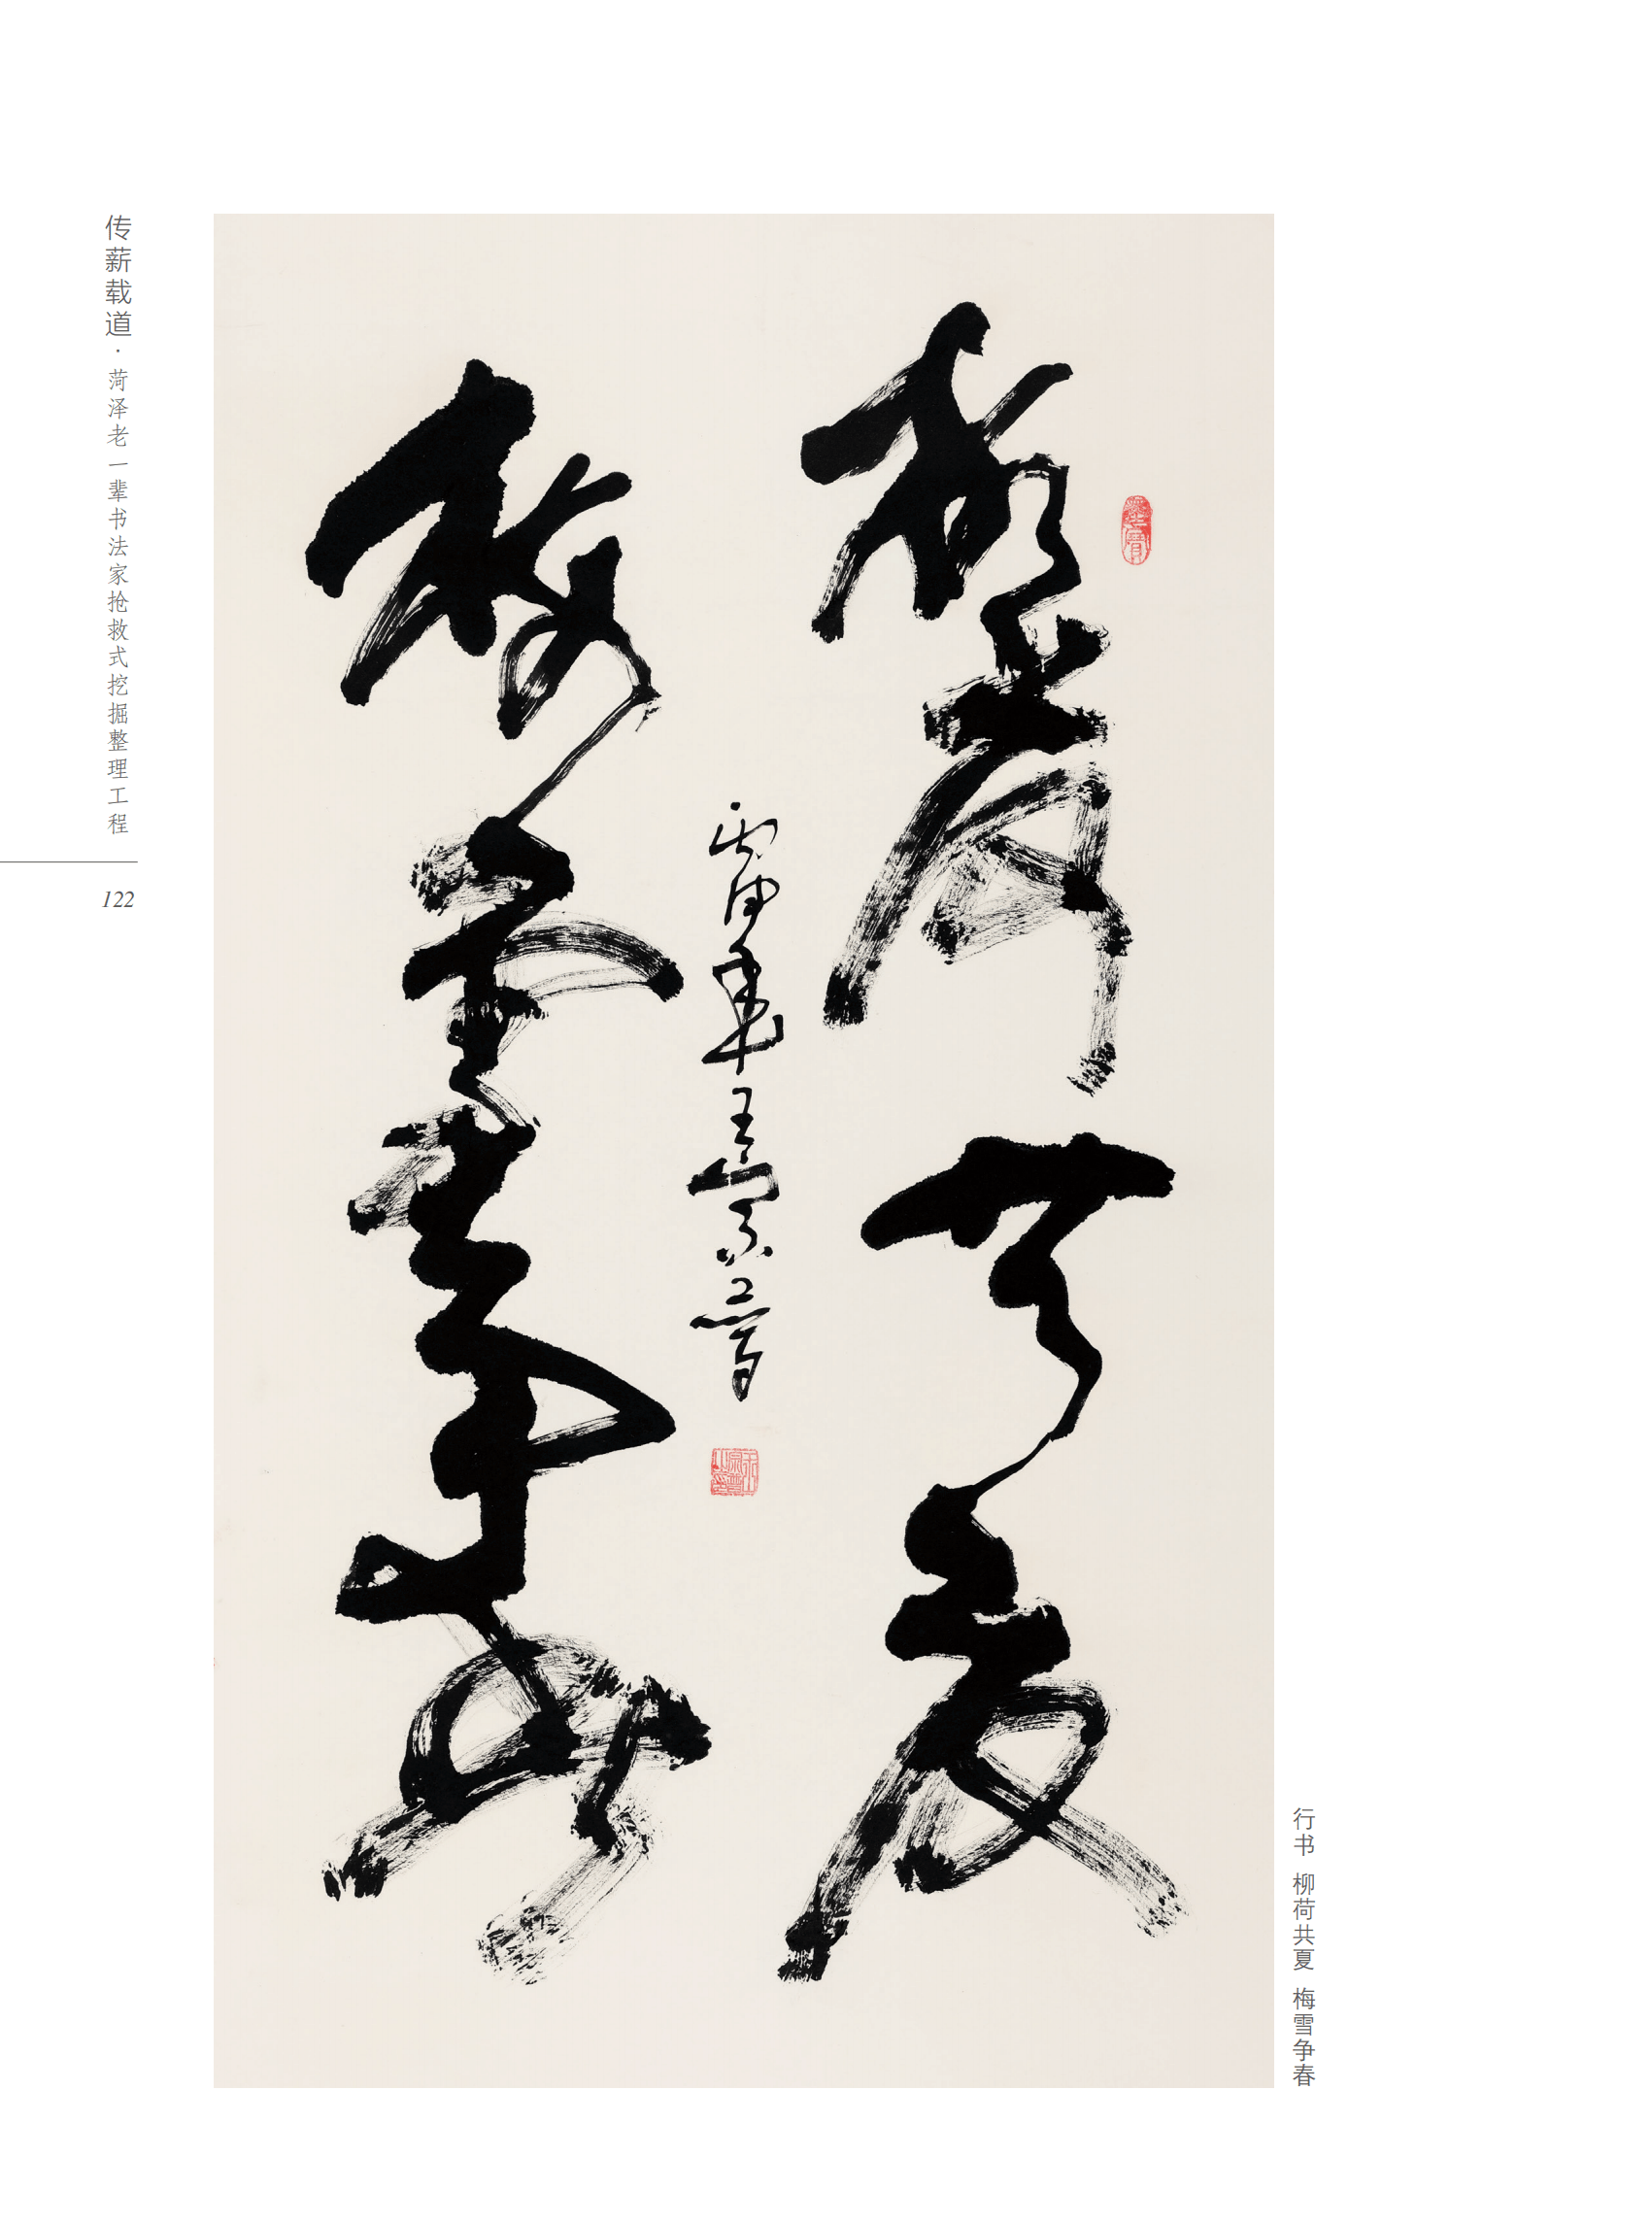 传薪载道·菏泽老一辈书法家抢救式挖掘整理工程
122
柳荷共夏
梅雪争春
丙申年王宗普
行书 柳荷共夏 梅雪争春